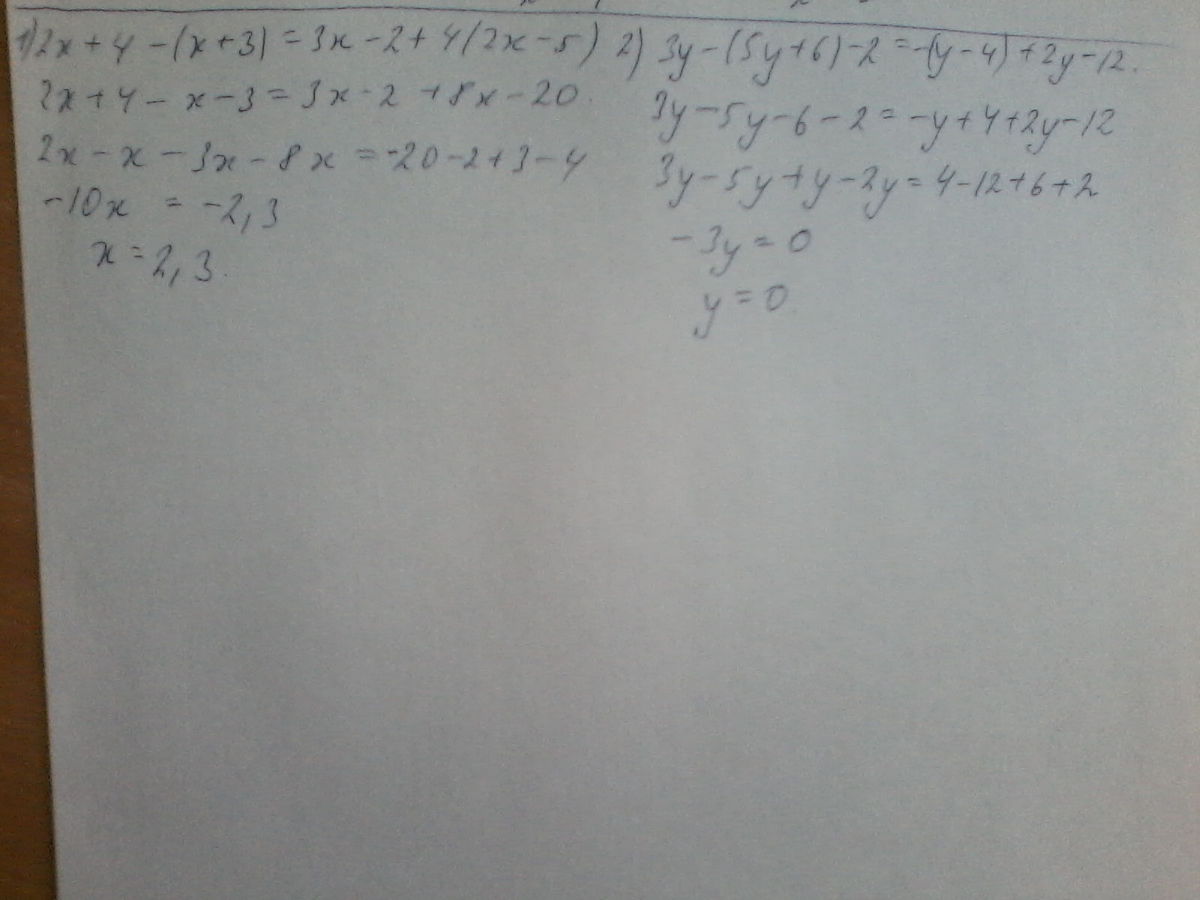 1) 2x + 4 - (x + 3) = 3x - 2 + 4(2x - 5)
2x + 4 - x - 3 = 3x - 2 + 8x - 20.
2x - x - 3x - 8x = -20 - 2 + 3 - 4
-10x = -2,3
x = 2,3.
2) 3y - (5y + 6) - 2 = -(y - 4) + 2y - 12.
3y - 5y - 6 - 2 = -y + 4 + 2y - 12
3y - 5y + y - 2y = 4 - 12 + 6 + 2
-3y = 0
y = 0